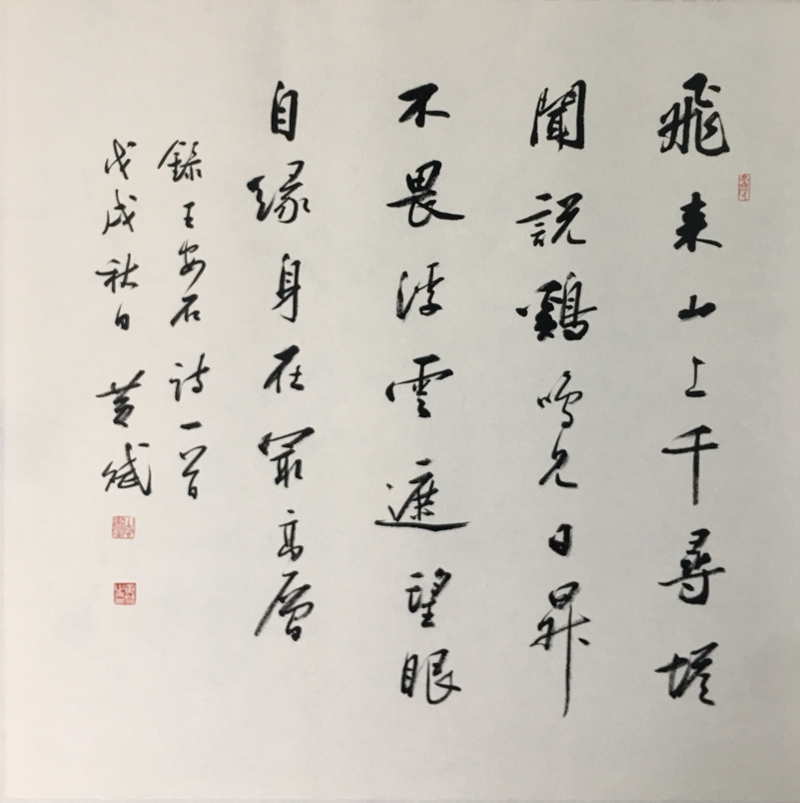 飛来山上千尋塔
聞說鷄鳴見日昇
不畏浮雲遮望眼
自緣身在最高層
錄王安石詩一首
戊戌秋日 黄斌